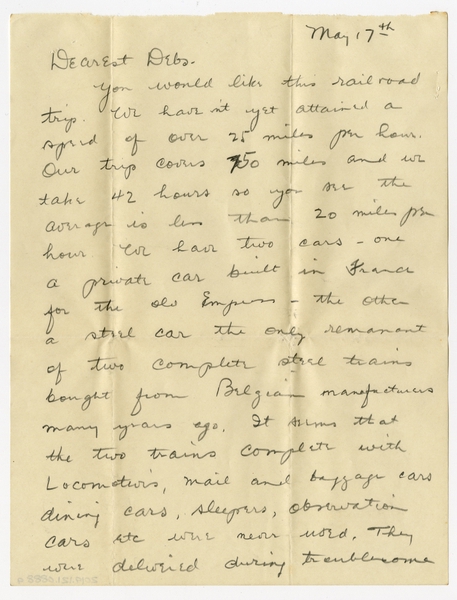 May 17th
Dearest Debs.
You would like this railroad
trip. We haven't yet attained a
speed of over 25 miles per hour.
Our trip covers 750 miles and we
take 42 hours so you see the
average is less than 20 miles per
hour. We have two cars - one
a private car built in France
for the old Empress - the other
a steel car the only remanant
of two complete steel trains
bought from Belgian manufacturers
many years ago. It seems that
the two trains complete with
Locomotives, mail and baggage cars
dining cars, sleepers, observation
cars etc were never used. They
were delivered during troublesome